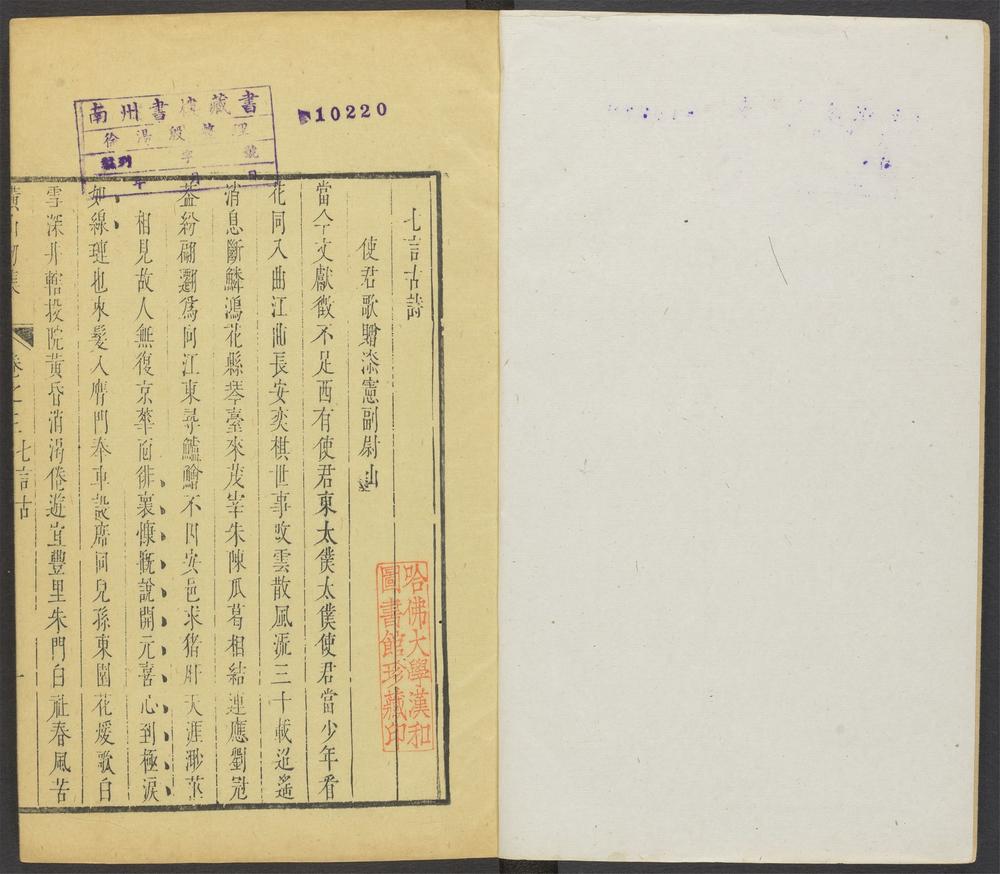 南州書樓藏書
徐湯殷整理
編列 字 號
年 月 日
10220
七言古詩
使君歌贈漆憲副尉山
當今文獻徵不足西有使君東太僕太僕使君當少年看
花同入曲江曲長安奕棋世事改雲散風流三十載迢遙
消息斷鱗鴻花縣琴臺來茂宰朱陳瓜葛相結連應劉冠
蓋紛翩翻爲問江東尋鱸鱠不因安邑求猪肝天涯渺
相見故人無復京華面徘裏慷慨說開元喜心到極淚
如線璉也來髮入膺門奉車設席同兒孫東園花煖歌白
雪深井轄投院黃昏消渴倦遊宜豐里朱門白社春風苦
卷之三 七言古 一
哈佛大學漢和
圖書館珍藏印